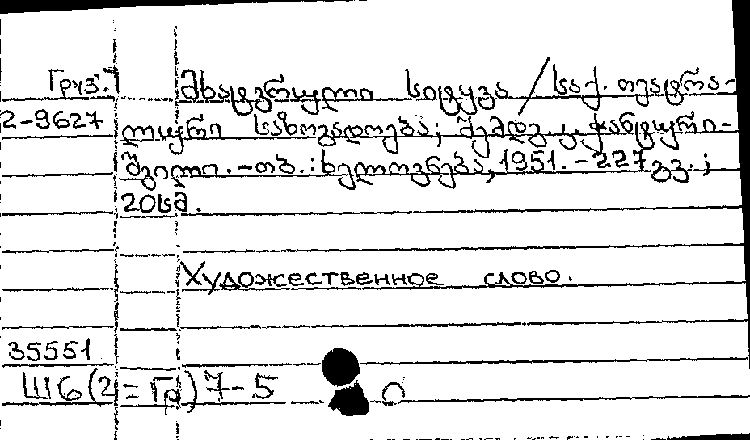 Груз. მხატვრული სიტყვა / საქ. თეატრა-
2-9627 ლური საზოგადოება; შემდგ. კ. ჭანტური-
შვილი. - თბ.: ხელოვნება, 1951. - 227 გვ.;
20სმ.
Художественное слово.
35551
Ш6(2=Гр)7-5 0